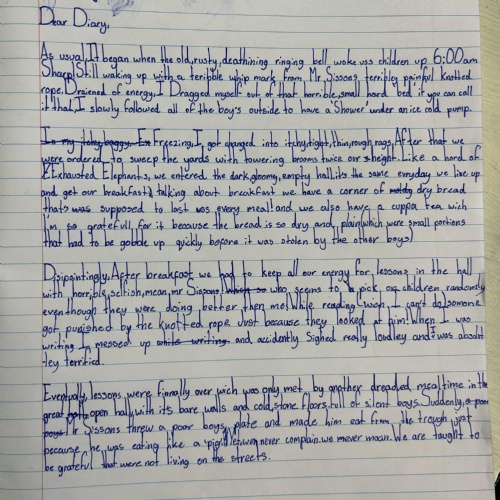 Dear Diary,
As usual, It began when the old, rusty, deathining ringing bell woke uss children up 6:00am
Sharp! Still waking up with a terribble whip mark from Mr Sissons terribley painful knotted
rope. Draiened of energy, I Dragged myself out of that horrible, small hard bed if you can call
it that, I slowly followed all of the boys outside to have a 'Shower' under an ice cold pump.
In my itchy baggy Ex Freezing, I got changed into itchy, tight, thin, rough rags. After that we
were ordered to sweep the yards with towering brooms twice our s height. Like a herd of
Exhausted Elephants, we entered the dark, gloomy, empty hall, its the same evryday we line up
and get our breakfast & talking about breakfast we have a corner of dry bread
thats was supposed to last us every meal! and we also have a cuppa tea wich
I'm so gratefull for it because the bread is so dry and, plain, wich were small portions
that had to be gobble up quickly before it was stolen by the other boys)
Disipointingly, After breakfast we had to keep all our energy for lessons in the hall
with, horrible, selfish, mean, mr Sissons! When so who, seems to pick on children randomly
eventhough they were doing better then me! While reading (wich I can't do) someone
got punished by the knotted rope Just because they looked at him! When I was
writing I messed up while writing and accidently Sighed really loudley and I was absolut
tley terrified.
Eventually, lessons were finnally over wich was only met by another dreaded mealtime in the
great open hall, with its bare walls and cold, stone floors, full of silent boys. Suddenly, a poor
boy! Mr Sissons threw a poor boys plate and made him eat from the trough just
because he was eating like a 'pig'! I never complain. we never moan. We are taught to
be grateful that were not living on the streets.